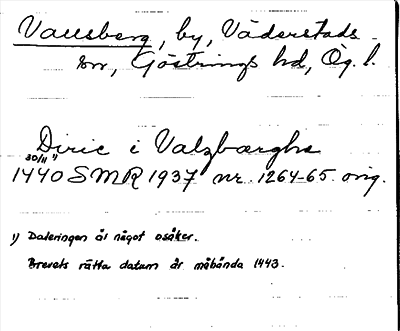 Vallsberg, by, Väderstads
sn, Göstrings hd, Ög. l.
Diric i Valzbærghe
30/11 1)
1440 SMR 1937 nr. 1264-65. orig.
1) Dateringen är något osäker.
Brevets rätta datum är måhända 1443.